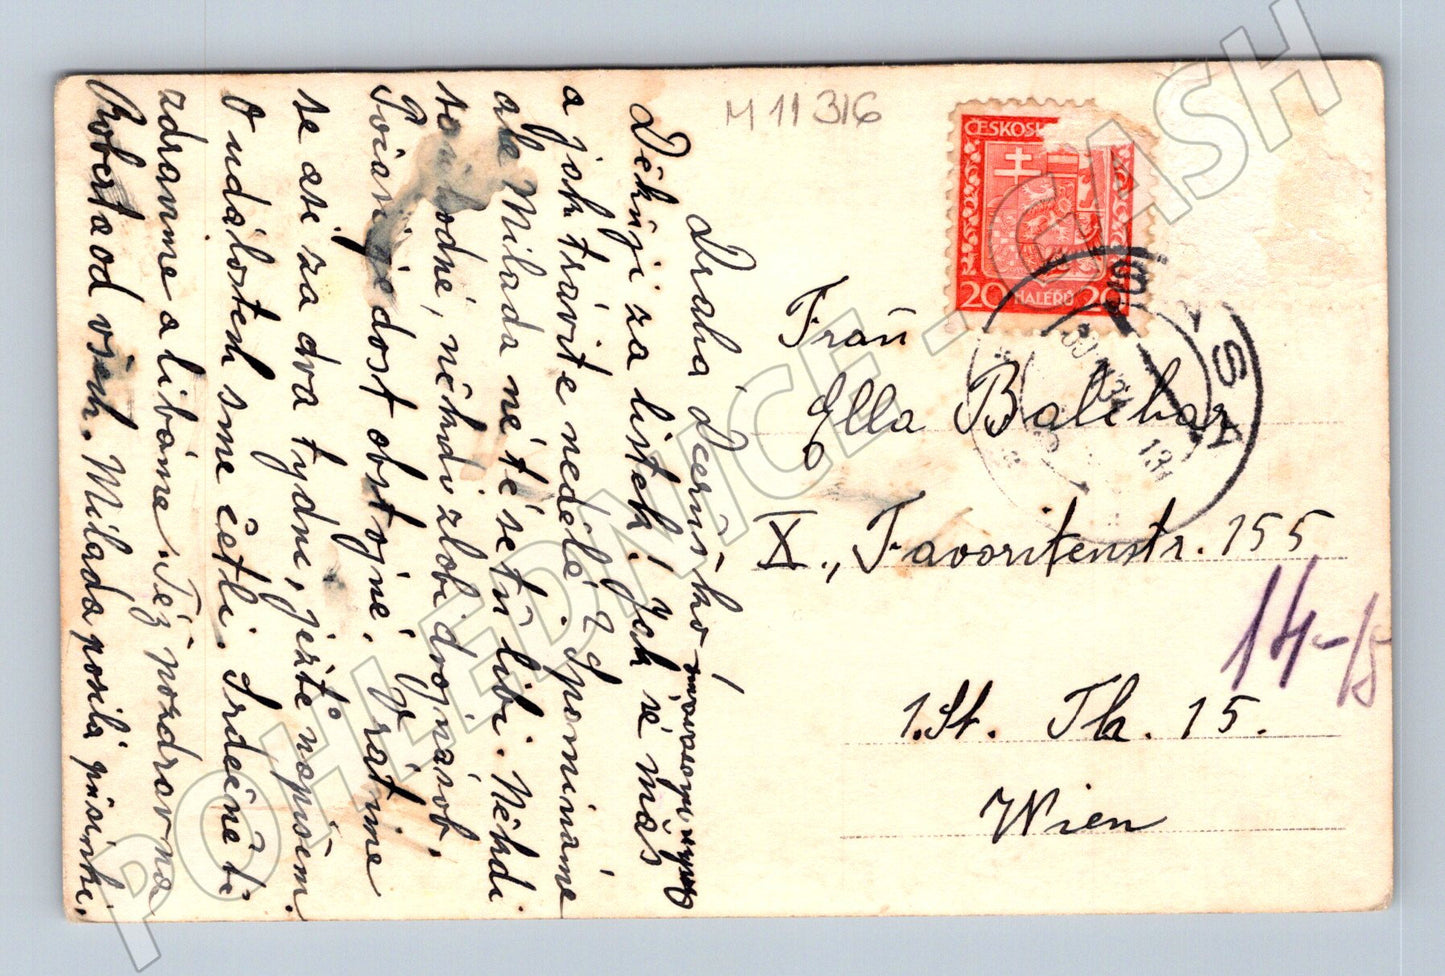 M 11 316
ČESKOSL
20 HALÉŘŮ 20
Frau
Ella Balcbar
X., Favoritenstr. 155
1.St. Th. 15.
Wien
14-/5
Drahá Dceruško!
Děkuji za lístek! Jak sé máš
a jak trávíte neděle? Spomínáme
ale Milada né té se tu líbí. Někdi
né, někdi zlobí dvojnásob.
je dost obstojné. Vrátíme
se asi za dva tydni, ješťe napošem.
O událostech sme četli. Srdečné ti
zdravíme a líbáme. Též pozdrav na
Roberta od všech. Milada posílá pusinki.
POHLEDNICE - CASH